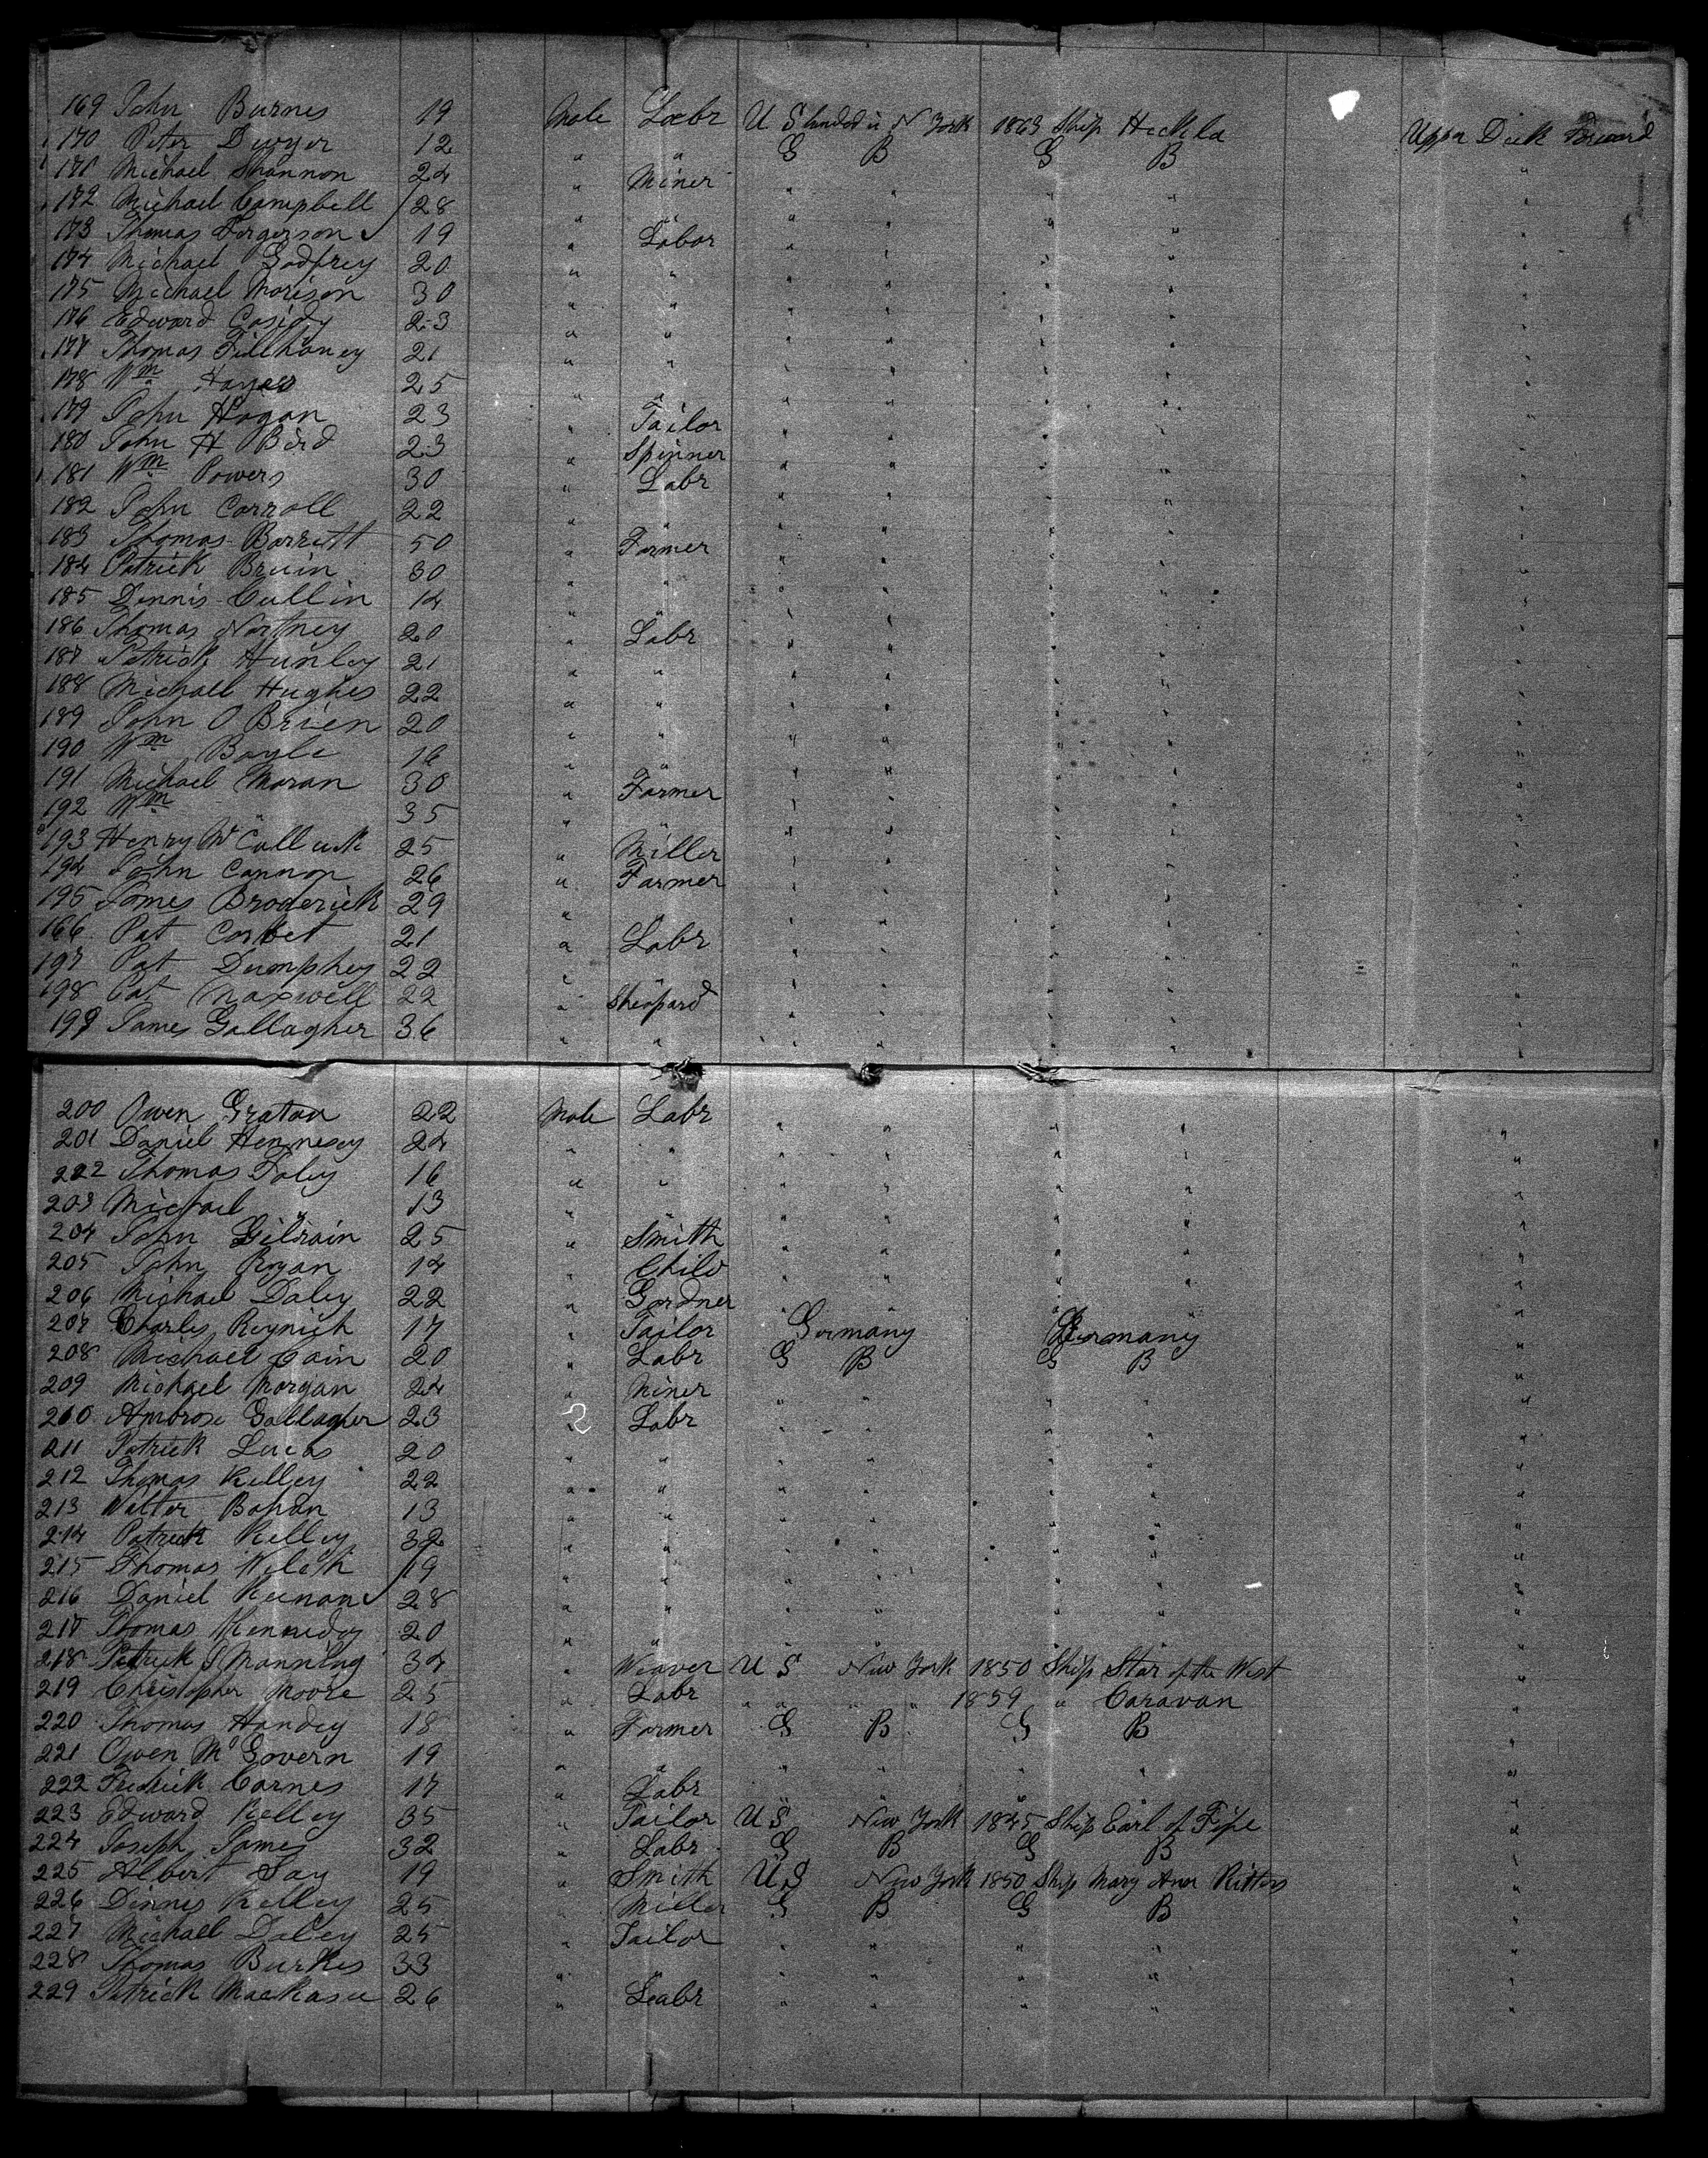 169 John Burnes 19 Male Labr U S landed in N York 1863 Ship Heckla Upper Deck Forward
170 Peter Dwyer 12 " " G B G B "
171 Michael Shannon 24 " Miner " " " " "
172 Michael Campbell 28 " " " " " " "
173 Thomas Fergerson 19 " Labor " " " " "
174 Michael Godfrey 20 " " " " " " "
175 Michael Morison 30 " " " " " " "
176 Edward Casidy 23 " " " " " " "
177 Thomas Fillhaney 21 " " " " " " "
178 Wm Hayes 25 " " " " " " "
179 John Hogan 23 " Tailor " " " " "
180 John H Bird 23 " Spinner " " " " "
181 Wm Powers 30 " Labr " " " " "
182 John Carroll 22 " " " " " " "
183 Thomas Barrett 50 " Farmer " " " " "
184 Patrick Bruin 30 " " " " " " "
185 Dennis Cullin 14 " " " " " " "
186 Thomas Nortney 20 " Labr " " " " "
187 Patrick Hunley 21 " " " " " " "
188 Michael Hughes 22 " " " " " " "
189 John O Brien 20 " " " " " " "
190 Wm Boyle 16 " " " " " " "
191 Michael Moran 30 " Farmer " " " " "
192 Wm " 35 " " " " " " "
193 Henry McCulluk 25 " Miller " " " " "
194 John Cannon 26 " Farmer " " " " "
195 James Broderick 29 " " " " " " "
166 Pat Corbet 21 " Labr " " " " "
197 Pat Dumphey 22 " " " " " " "
198 Pat Maxwell 22 " Shepard " " " " "
199 James Gallagher 36 " " " " " " "
200 Owen Graton 22 Male Labr " " " " "
201 Daniel Hennesey 24 " " " " " " "
222 Thomas Foley 16 " " " " " " "
203 Michael " 13 " " " " " " "
204 John Gilrain 25 " Smith " " " " "
205 John Ryan 14 " Child " " " " "
206 Michael Daley 22 " Gardner " " " " "
207 Charles Reynich 17 " Tailor Germany Germany "
208 Michael Cain 20 " Labr G B G B "
209 Michael Morgan 24 " Miner " " " " "
210 Ambrose Gallagher 23 " Labr " " " " "
211 Patrick Lucas 20 " " " " " " "
212 Thomas Kelley 22 " " " " " " "
213 Walter Bohan 13 " " " " " " "
214 Patrick Kelley 32 " " " " " " "
215 Thomas Welch 19 " " " " " " "
216 Daniel Keenan 28 " " " " " " "
217 Thomas Kennedy 20 " " " " " " "
218 Patrick Manning 34 " Weaver U S New York 1850 Ship Star of the West "
219 Christopher Moore 25 " Labr " " " " 1859 " Caravan "
220 Thomas Handey 18 " Farmer G B G B "
221 Owen McGovern 19 " " " " " " "
222 Fredrick Carnes 17 " Labr " " " " "
223 Edward Kelley 35 " Tailor U S New York 1845 Ship Earl of Fife "
224 Joseph James 32 " Labr G B G B "
225 Albert Say 19 " Smith U S New York 1850 Ship Mary Ann Kitters "
226 Dinnes Kelley 25 " Miller G B G B "
227 Michael Daley 25 " Tailor " " " " "
228 Thomas Burkes 33 " " " " " " "
229 Patrick 26 " Labr " " " " "